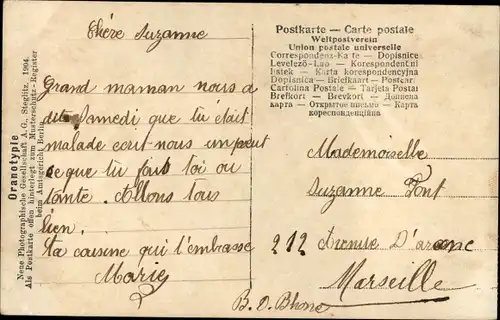 Chère Suzanne
Grand maman nous a
dit Samedi que tu était
malade ecrit nous un peut
ce que tu fait toi ou
tante. Allons tous
bien.
ta cousine qui t'embrasse
Marie
Oranotypie
Neue Photographische Gesellschaft A.G., Steglitz, 1904.
Als Postkarte offen hinterlegt zum Musterschutz-Register
beim Amtsgericht Berlin
Postkarte — Carte postale
Weltpostverein
Union postale universelle
Correspondenz-Karte — Dopisnice
Levelező-Lap — Korespondentní
lístek — Karta korespondencyjna
Dopisnica — Briefkaart — Postcard
Cartolina Postale — Tarjeta Postal
Brefkort — Brevkort — Дописна
карта — Открытое письмо — Карта
кореспонденційна
Mademoiselle
Suzanne Pont
212 Avenue D'arenc
Marseille
B. D. Rhone